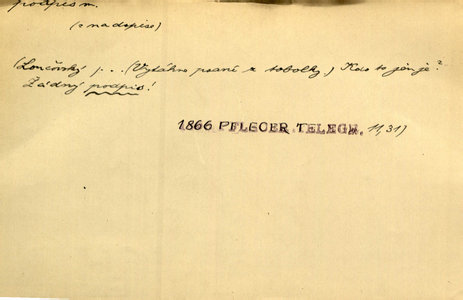 podpis m.
(z nadepise)
(Loučovský): ... (Vytáhne psaní z tobolky.) Kdo to jen je?
Žádný podpis!
1866 PFLEGER TELEGR. 11,31)